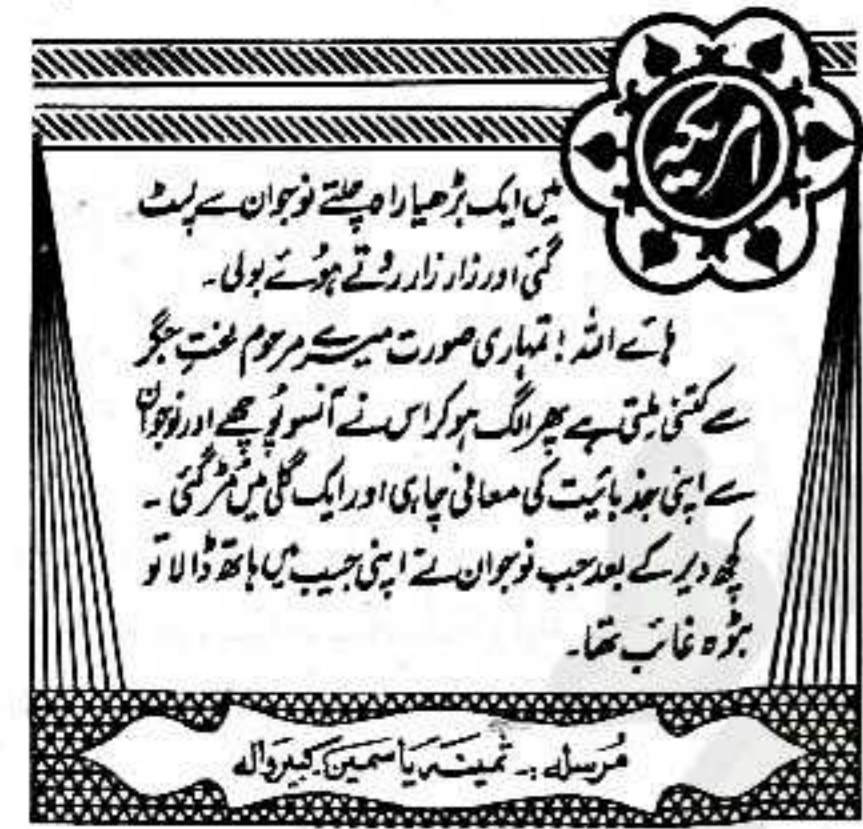 امریکہ
میں ایک بڑھیا راہ چلتے نوجوان سے لپٹ
گئی اور زار زار روتے ہوئے بولی۔
ہائے اللہ! تمہاری صورت میرے مرحوم لختِ جگر
سے کتنی ملتی ہے پھر الگ ہو کر اس نے آنسو پونچھے اور نوجوان
سے اپنی جذباتیت کی معافی چاہی اور ایک گلی میں مُڑ گئی۔
کچھ دیر کے بعد جب نوجوان نے اپنی جیب میں ہاتھ ڈالا تو
بٹوہ غائب تھا۔
مُرسلہ :۔ ثمینہ یاسمین کبیر والہ